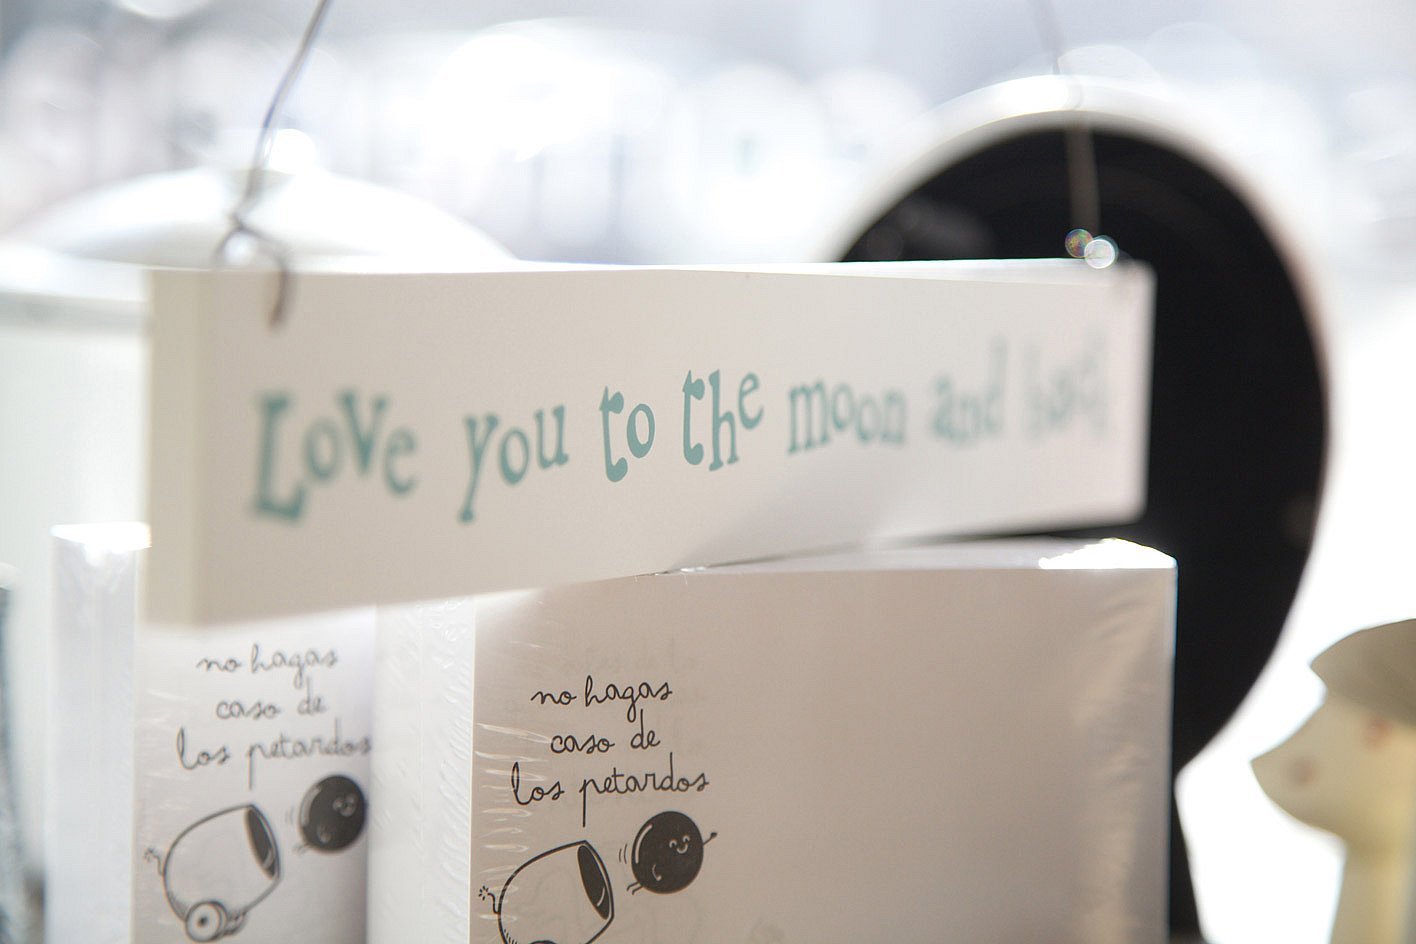 Love you to the moon and back
no hagas
caso de
los petardos
no hagas
caso de
los petardos